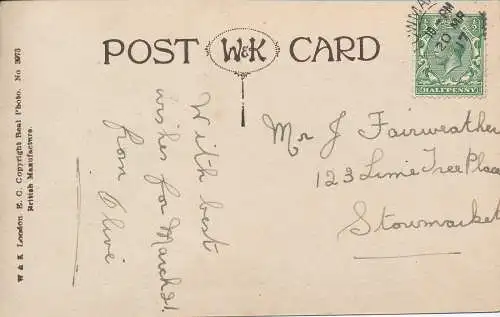 POST W&K CARD
W & K London E. C. Copyright Real Photo. No. 3973
British Manufacture.
With best
wishes for March 21.
from Olive
20 MR
17
HALFPENNY
Mr J Fairweather
123 Lime Tree Place
Stowmarket